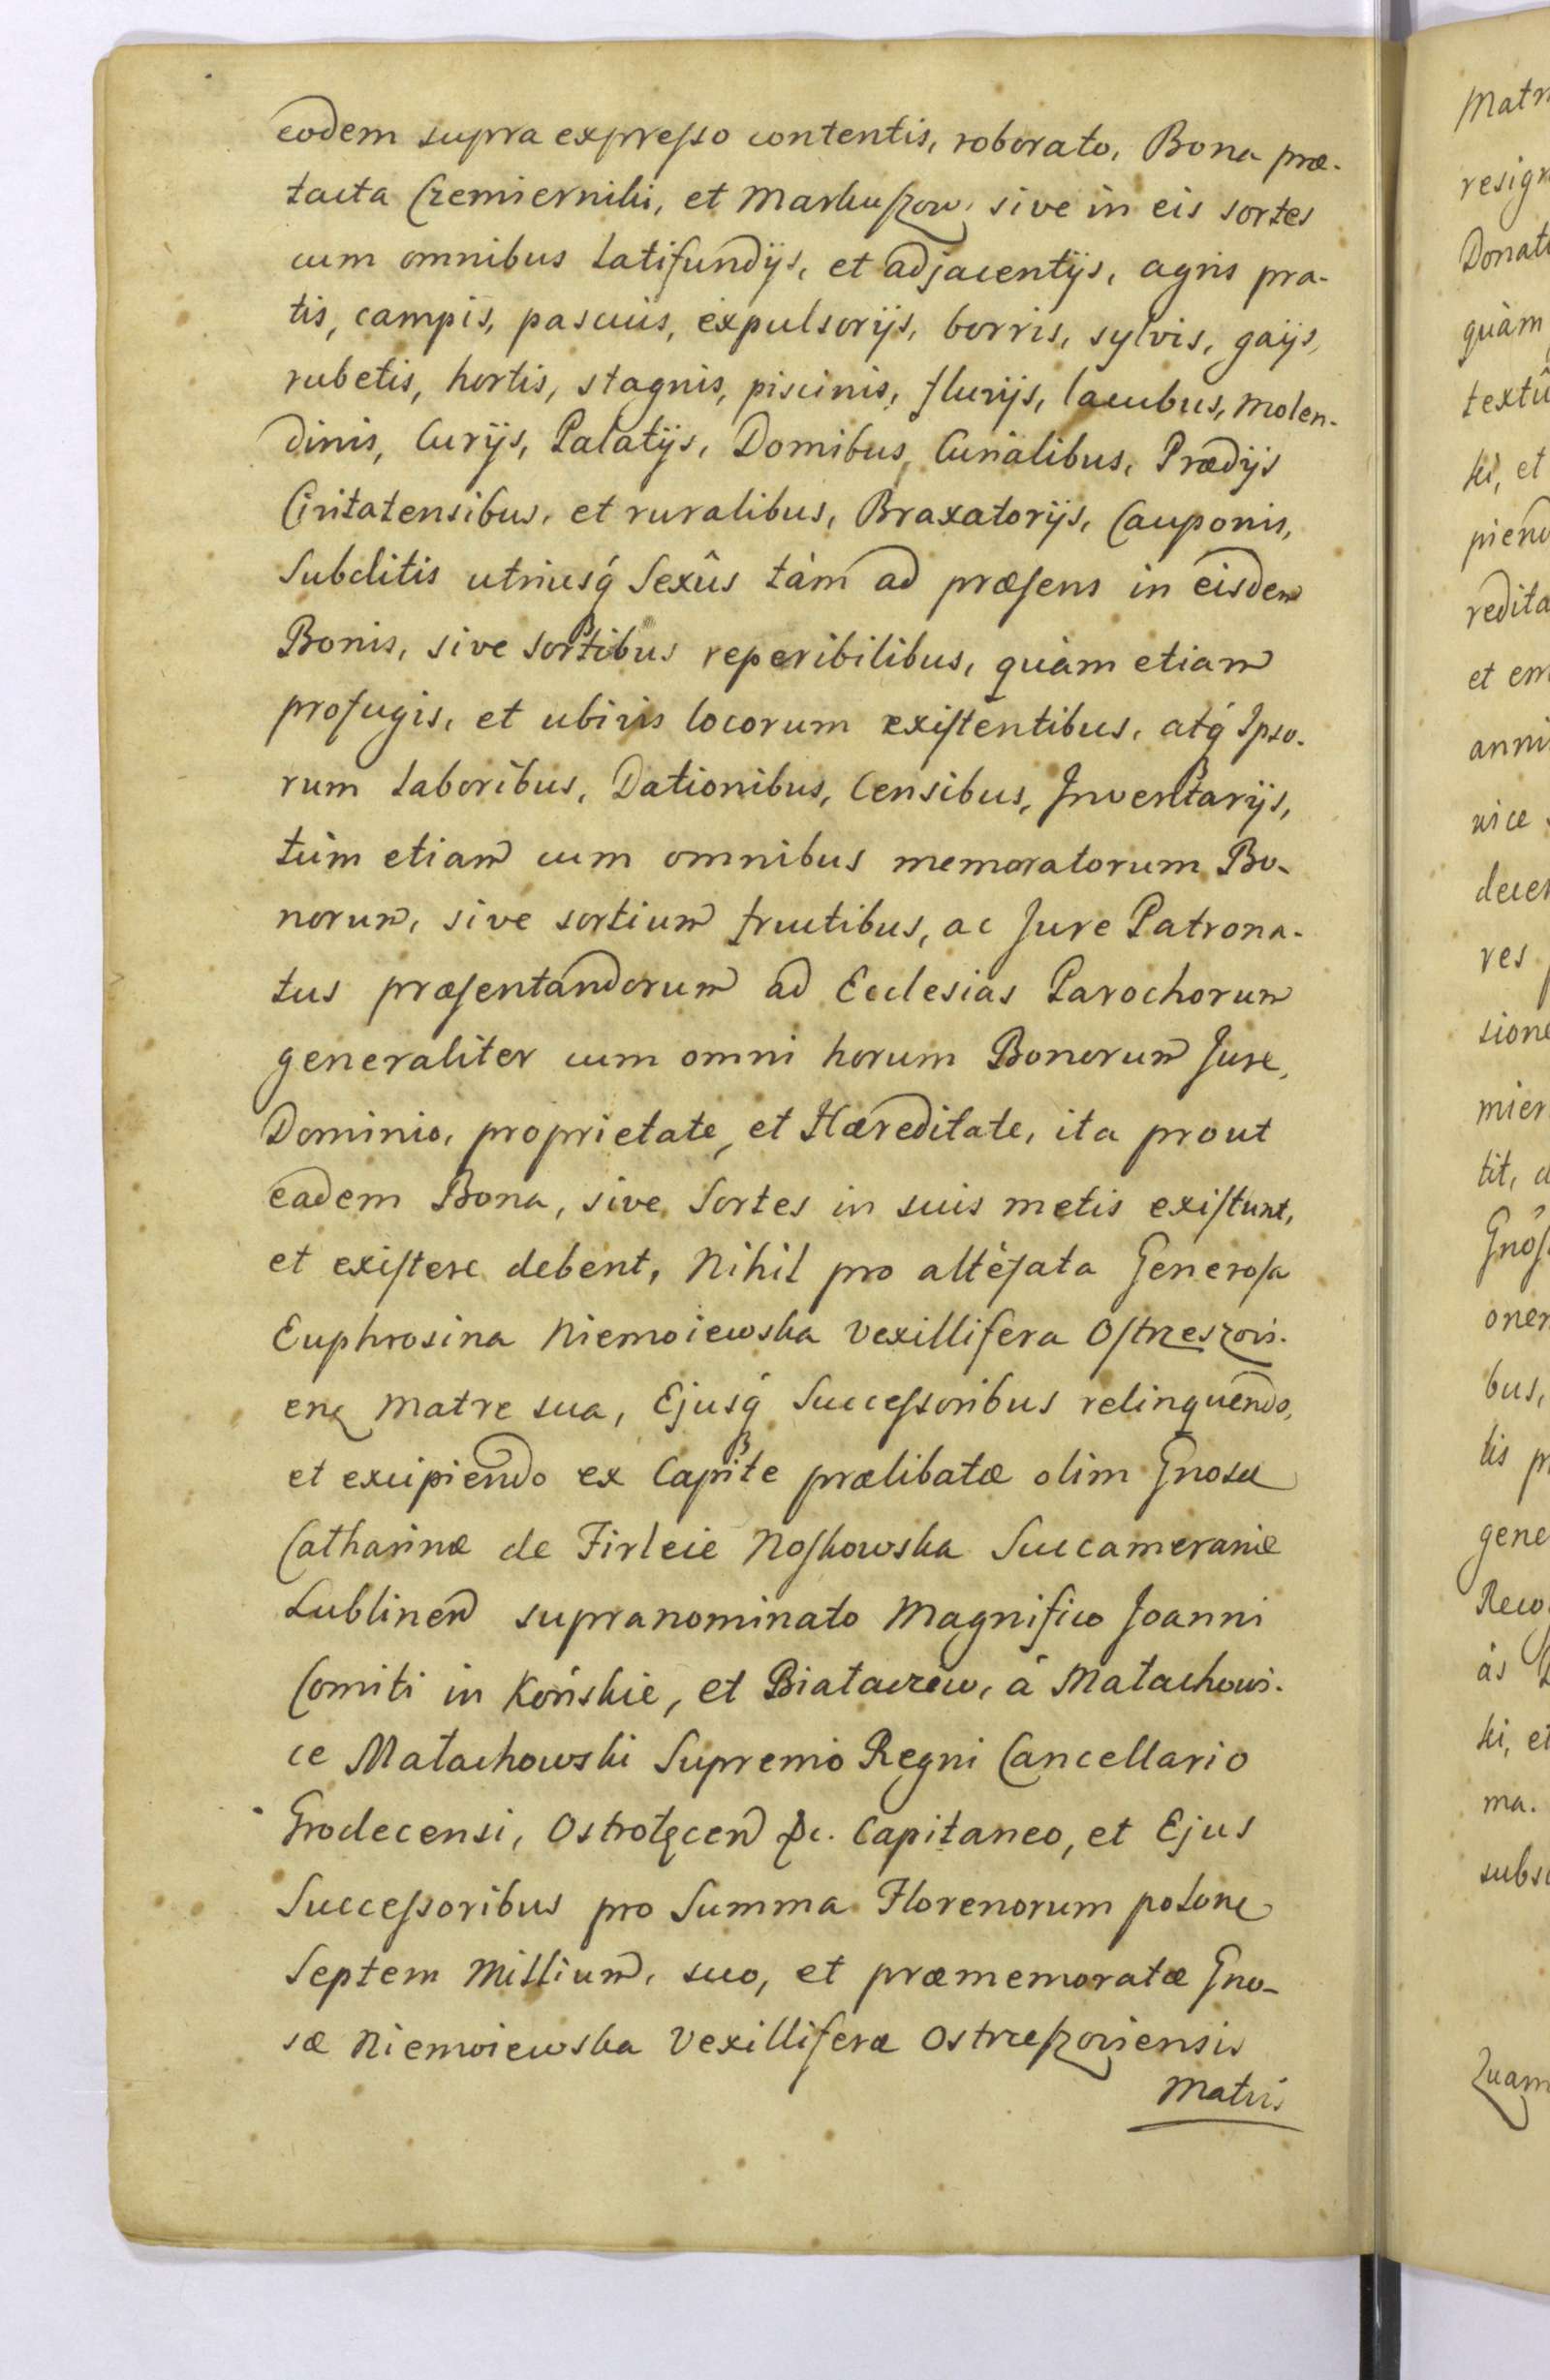 eodem supra expreſso contentis, roborato, Bona præ-
tacta Czemierniki, et Markuſzow, sive in eis sortes
cum omnibus Latifundijs, et adjacentijs, agris pra-
tis, campis, pascuis, expulsorijs, borris, sylvis, gaijs,
rubetis, hortis, stagnis, piscinis, fluvijs, lacubus, molen-
dinis, Curijs, Palatijs, Domibus, Curialibus, Prædijs
Civitatensibus, et ruralibus, Braxatorijs, Cauponis,
Subditis utriusq́ Sexûs tàm ad præſens in eisdem
Bonis, sive Sortibus reperibilibus, quàm etiam
profugis, et ubivis locorum exiſtentibus, atq́ Ipso-
rum Laboribus, Dationibus, Censibus, Inventarijs,
tùm etiam cum omnibus memoratorum Bo-
norum, sive sortium fructibus, ac Jure Patrona-
tus præſentandorum ad Ecclesias Parochorum
generaliter cum omni horum Bonorum Jure,
Dominio, proprietate, et Hæreditate, ita prout
eadem Bona, sive Sortes in suis metis exiſtunt,
et exiſtere debent, Nihil pro altefata Generoſa
Euphrosina Niemoiewska Vexillifera Oſtrzeszovi-
en̄ Matre sua, Ejusq́ Succeſsoribus relinquendo,
et excipiendo ex Capite prælibatæ olim Gnosæ
Catharinæ de Firleie Noſkowska Succameraniæ
Lublinen̄ supranominato Magnifico Joanni
Comiti in Końskie, et Białaczew, á Małachowi-
ce Małachowski Supremo Regni Cancellario
Grodecensi, Ostrołęcen̄ &c. Capitaneo, et Ejus
Succeſsoribus pro Summa Florenorum polone
Septem Millium, suo, et præmemoratæ Gno-
sæ Niemoiewska Vexilliferæ Ostrzeſzoviensis
Matris
Matr
resign
Donati
quàm
textû
ki, et
piend
redita
et em
anni
vice
decer
res
sione
mier
tit, a
Gnoſ
oner
bus,
lis p
gene
Reco
às
ki, et
ma.
subsc
Quam